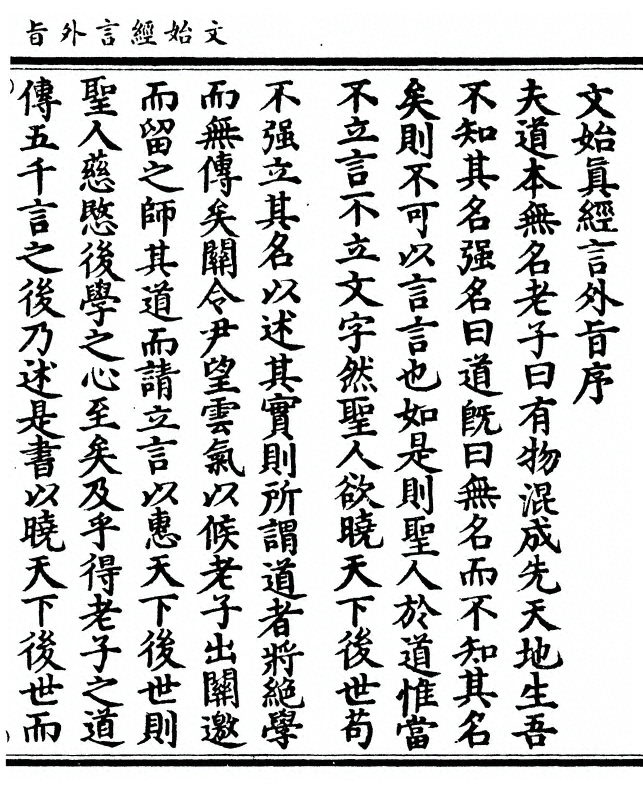 文始經言外旨
文始眞經言外旨序
夫道本無名老子曰有物混成先天地生吾
不知其名强名曰道旣曰無名而不知其名
矣則不可以言言也如是則聖人於道惟當
不立言不立文字然聖人欲曉天下後世苟
不强立其名以述其實則所謂道者將絕學
而無傳矣關令尹望雲氣以候老子出關邀
而留之師其道而請立言以惠天下後世則
聖人慈愍後學之心至矣及乎得老子之道
傳五千言之後乃述是書以曉天下後世而